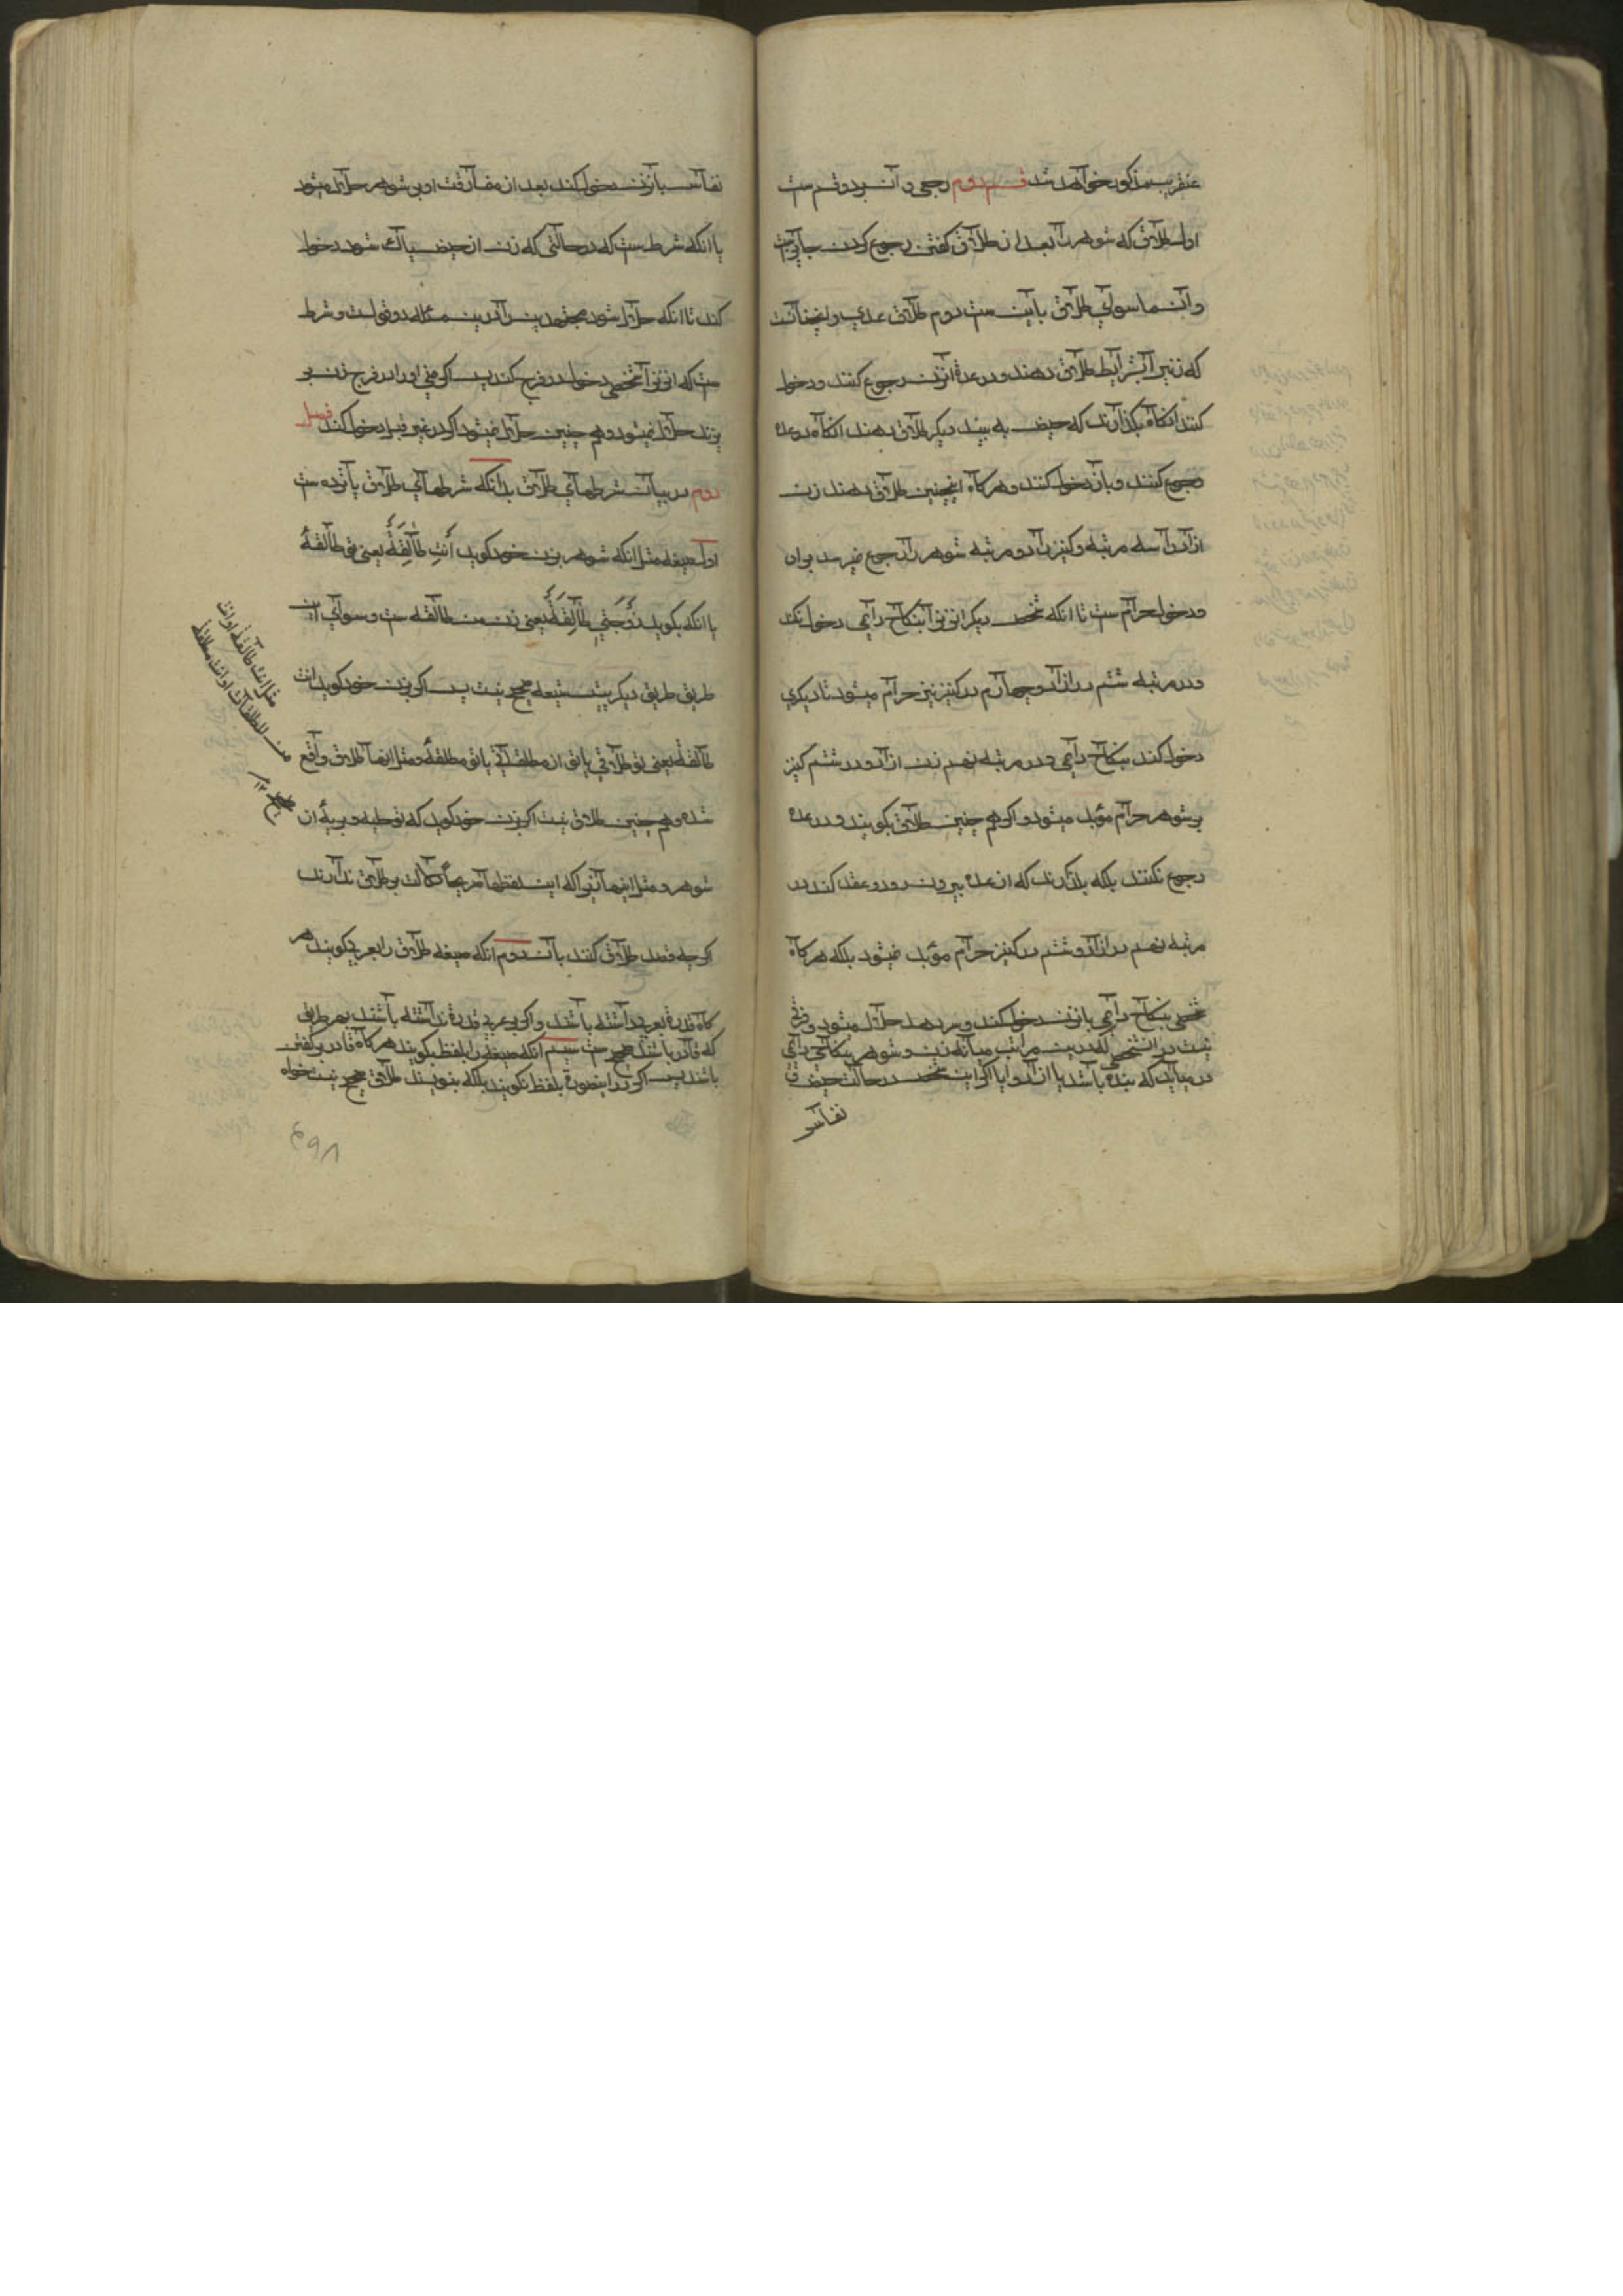 عنقریب مذکور خواهد شد قسم دوم رجعی و آن بردو قسم ست
اول طلاق که شوهر را بعد از طلاق کفتن رجوع کردن جایز ست
و آن ماسوای طلاق باین ست دوم طلاق عدی و انچنانست
که زنیرا بشرایط طلاق دهند و در عدۀ انزن رجوع کنند و دخول
کنند انکاه بکذارند که حیض به بیند دیکر طلاق دهند انکاه در عده
رجوع کنند و بان دخول کنند و هرکاه اینچنین طلاق دهند زن
ازاد را سه مرتبه و کنیز را دو مرتبه شوهر را رجوع نمیرسد بران
و دخول حرام ست تا انکه شخص دیکر انزنرا بنکاح دایمی دخول نکند
و در مرتبه ششم در ازاد و چهارم در کنیز نیز حرام میشود تا دیکری
دخول کند بنکاح دایمی و در مرتبه نهم زن ازاد و در ششم کنیز
بر شوهر حرام مؤبد میشود و اکر هم چنین طلاق بکویند و در عده
رجوع نکنند بلکه بکذارند که از عده بیرون رود و عقد کند در
مرتبه نهم در ازاد و ششم در کنیز حرام موبد نمیشود بلکه هرکاه
شخصی بنکاح دایمی بازن دخول کند و سر دهد حلال میشود و فرقی
نیست در انشخصی که درین مراتب میانه زن و شوهر بنکاح دایمی
در میاید که بنده باشد یا ازاد و ایا اکر این شخص در حالت حیض و
نفاس
نفاس بازن دخول کند بعد از مفارقت او بر شوهر حلال میشود
یا انکه شرط ست که در حالتی که زن از حیض پاک شود دخول
کند تا انکه حلال شود مجتهدین را درین مسئله دو قول است و شرط
ست که انزنرا شخصی دخول در فرج کند پس اکر منی او را در فرج زن بر
یزند حلال نمیشود و هم چنین حلال نمیشود اکر در غیر قبل دخول کند فصل
دوم در بیان شرطهای طلاق بدانکه شرطهای طلاق پانزده ست
اول صیغه مثل انکه شوهر بزن خود کوید أنتِ طَالِقَةٌ یعنی توی طالقه
یا انکه بکوید زَوجَتِي طَالِقَةٌ یعنی زن من طالقه ست و سوای این
طریق طریق دیکر پیش شیعه صحیح نیست پس اکر بزن خود کوید انت
طالقة یعنی تو طلاقی یا تو از مطلقاتی یا تو مطلقه و مثل اینها طلاق واقع
نشده و هم چنین طلاق نیست اکر بزن خود کوید که تو خلیه و بریه از
شوهر و مثل اینها زیرا که این لفظها صریحا دلالت بر طلاق ندارند
اکرچه قصد طلاق کنند بان دوم انکه صیغه طلاق را بعربی بکویند هر
کاه قدرة بعربی داشته باشند و اکر بعربی قدرة نداشته باشند بهر طریق
که قادر باشند صحیح ست سیم انکه صیغه را بلفظ بکویند هرکاه قادر بر کفتن
باشند پس اکر در اینصورة بلفظ نکویند بلکه بنویسند طلاق صحیح نیست خواه
مثل انت طالقة او انت
من المطلقات او انت مطلقة
۱۲
۴۹۸